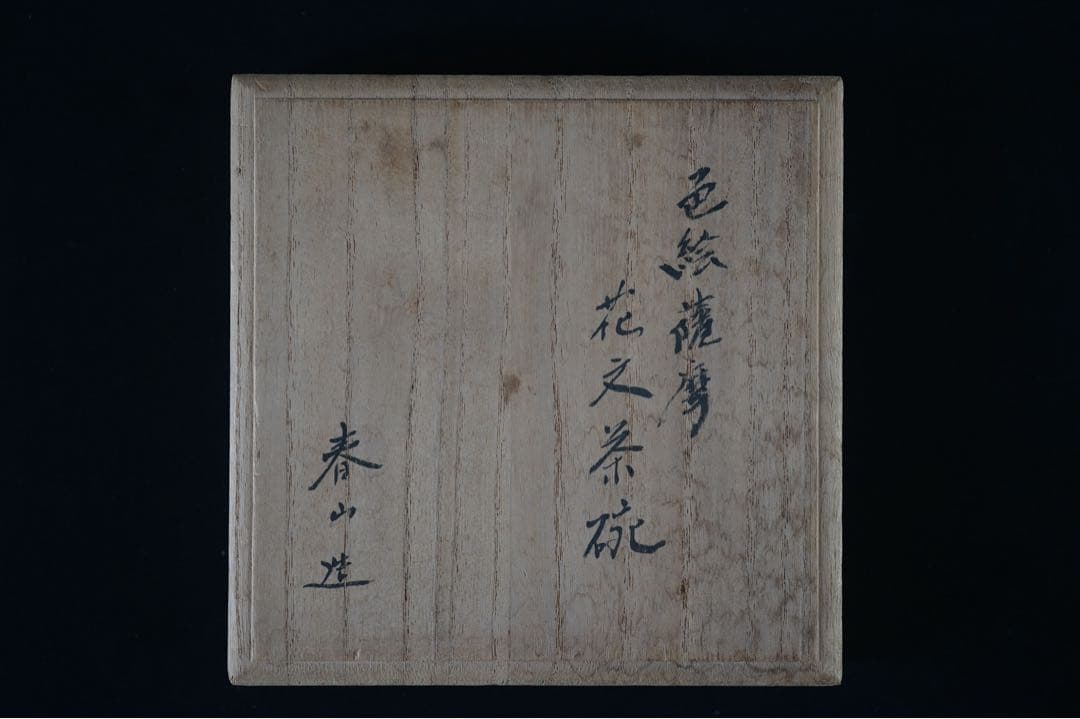 色絵薩摩
花文茶碗
春山造